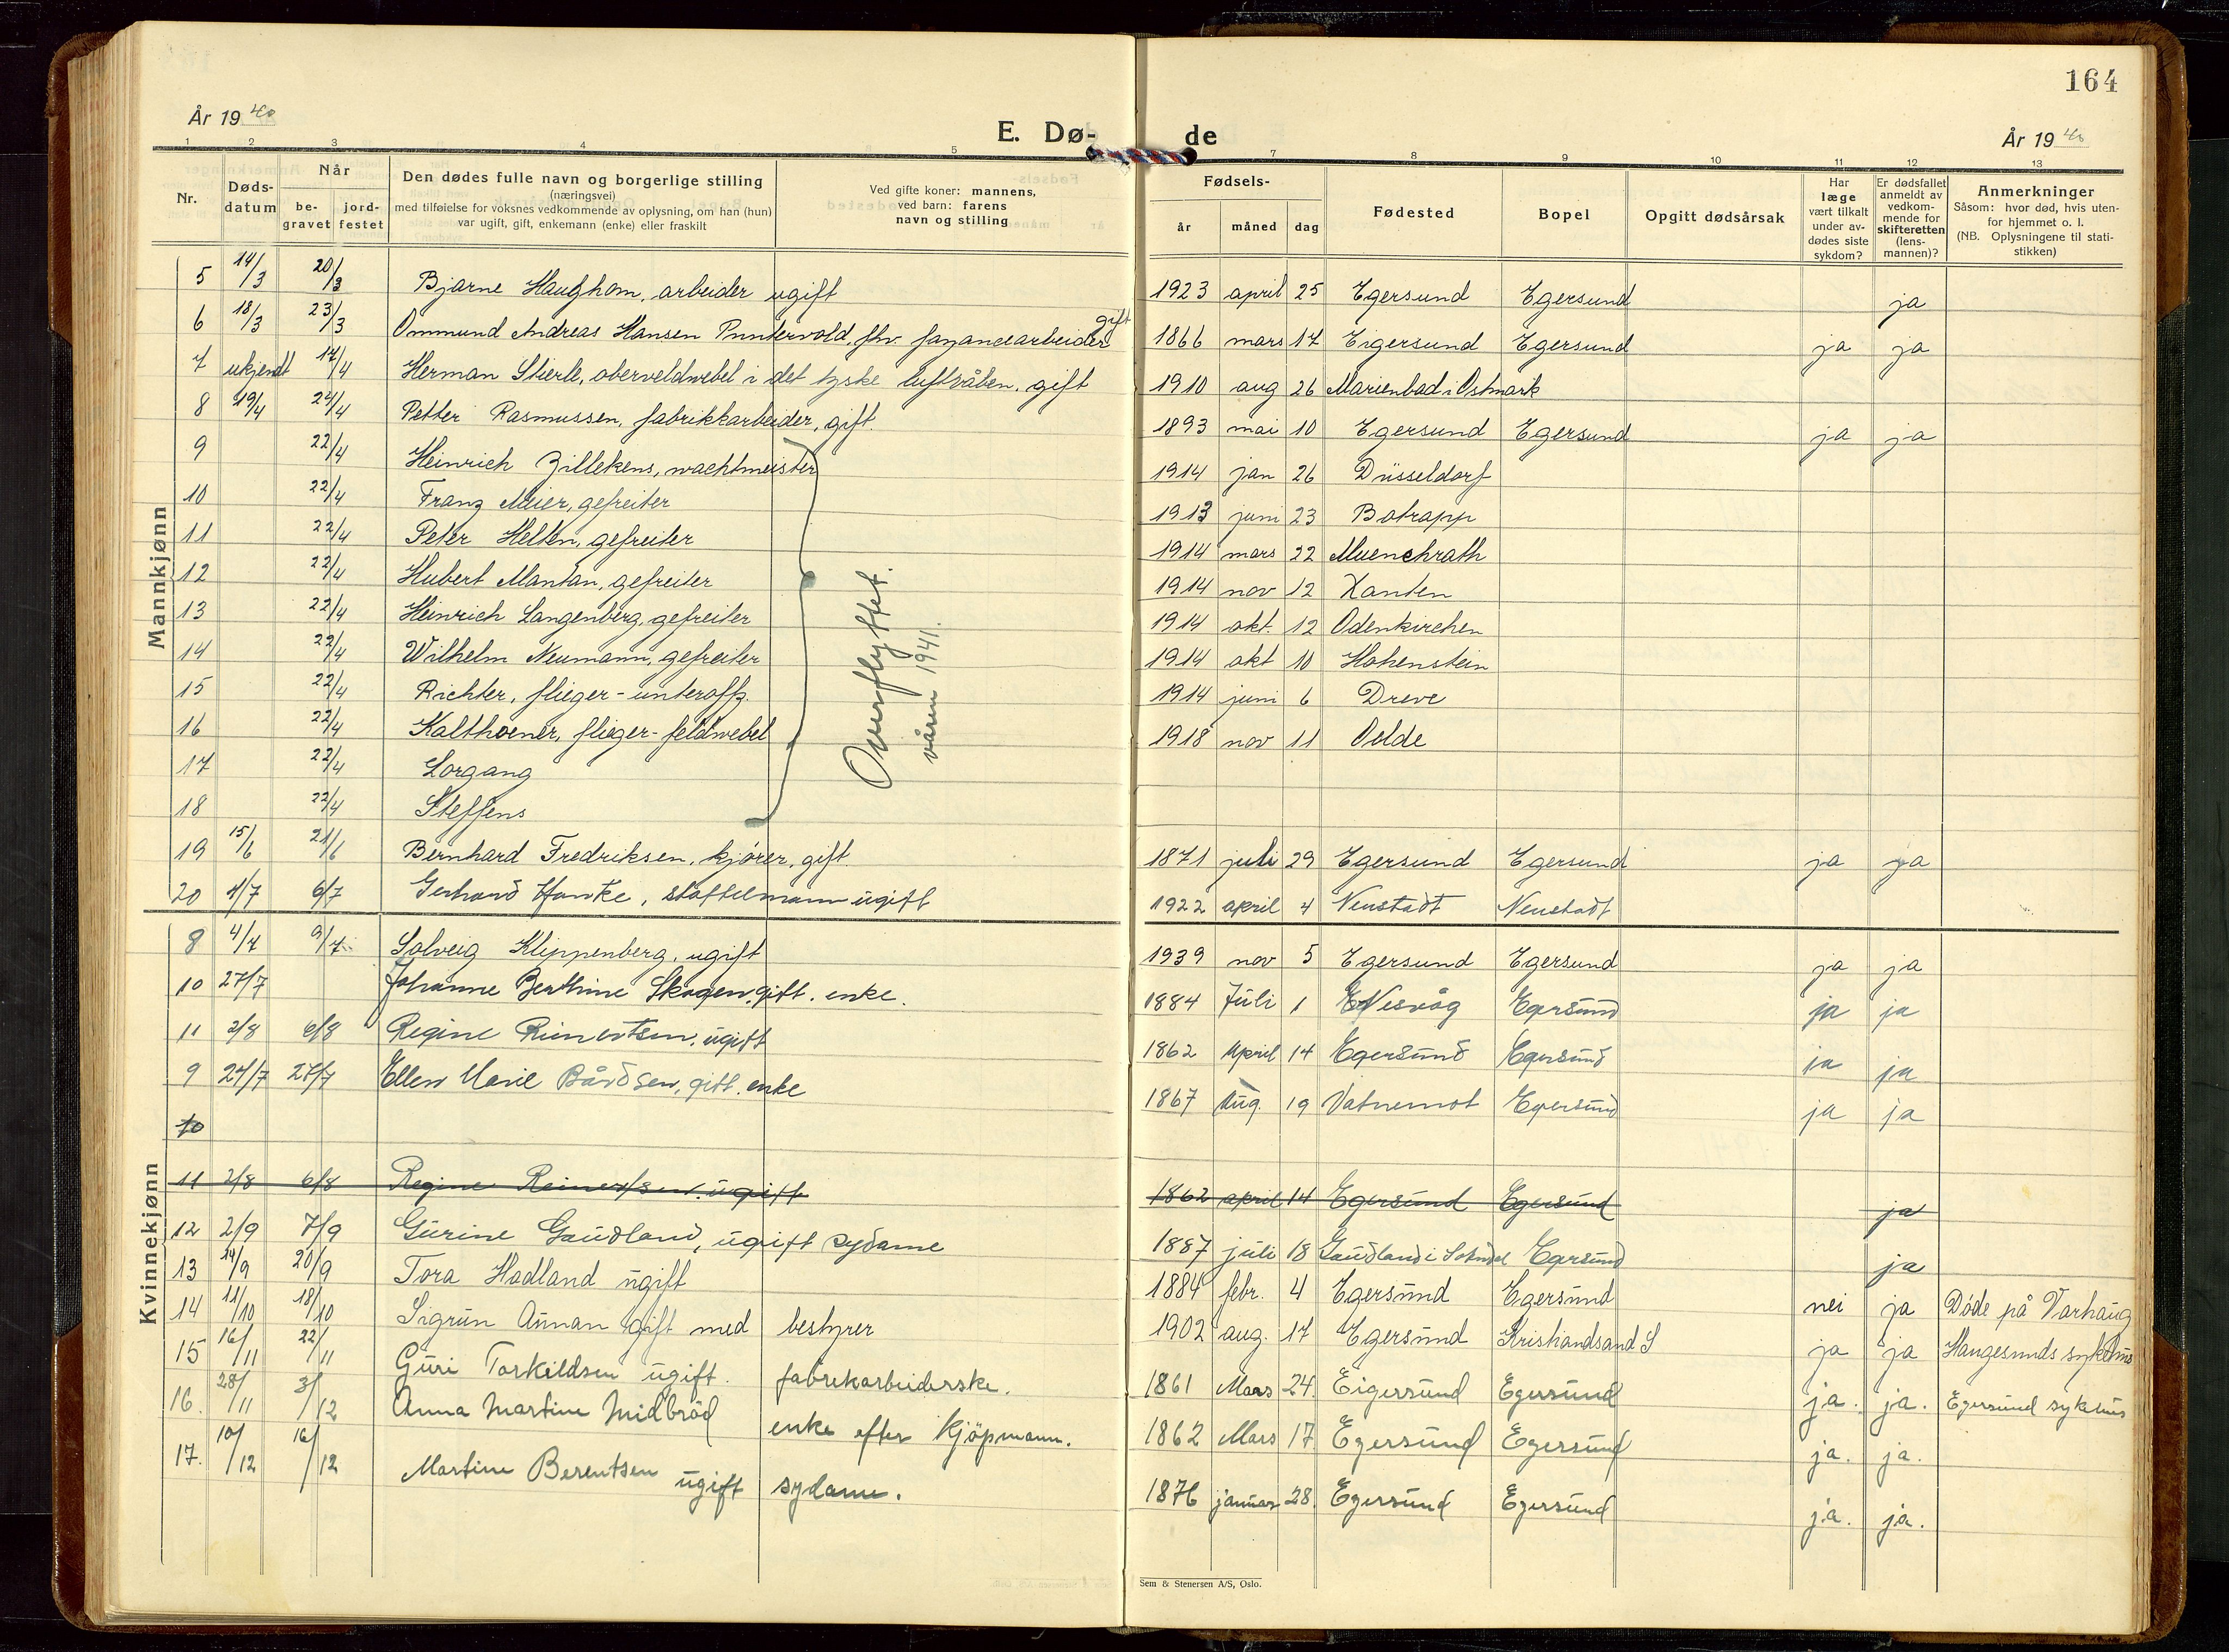 164
År 1940
E. Dø-
de
År 1940
1 2 3 4 5 7 8 9 10 11 12 13
Nr.
Døds-
datum
Når
be-
gravet
jord-
festet
Den dødes fulle navn og borgerlige stilling
(næringsvei)
med tilføielse for voksnes vedkommende av oplysning, om han (hun)
var ugift, gift, enkemann (enke) eller fraskilt
Ved gifte koner: mannens,
ved barn: farens
navn og stilling
Fødsels-
år måned dag
Fødested
Bopel
Opgitt dødsårsak
Har
læge
vært tilkalt
under av-
dødes siste
sykdom?
Er dødsfallet
anmeldt av
vedkom-
mende for
skifteretten
(lens-
mannen)?
Anmerkninger
Såsom: hvor død, hvis uten-
for hjemmet o. l.
(NB. Oplysningene til stati-
stikken)
Mannkjønn
5 14/3 20/3 Bjarne Haughom, arbeider ugift 1923 april 25 Egersund Egersund ja
6 18/3 23/3 Ommund Andreas Hansen Puntervold, fhv. fayancearbeider gift 1866 mars 17 Eigersund Egersund ja ja
7 ukjendt 17/4 Herman Stierle, oberveldwebel i det tyske luftvåben, gift 1910 aug 26 Marienbad i Ostmark
8 19/4 24/4 Petter Rasmussen, fabrikkarbeider, gift. 1893 mai 10 Egersund Egersund ja ja
9 22/4 Heinrich Zillekens, wachtmeister 1914 jan 26 Düsseldorf
10 22/4 Franz Meier, gefreiter 1913 juni 23 Botrapp
11 22/4 Peter Helten, gefreiter 1914 mars 22 Muenchrath
12 22/4 Hubert Mantan, gefreiter 1914 nov 12 Xanten
13 22/4 Heinrich Langenberg, gefreiter 1914 okt. 12 Odenkirchen
14 22/4 Wilhelm Neumann, gefreiter 1914 okt 10 Hohenstein
15 22/4 Richter, flieger-unteroffz. 1914 juni 6 Dreve
16 22/4 Kalthoener, flieger-feldwebel 1918 nov 11 Oelde
17 22/4 Lorgang
18 22/4 Steffens
Overflyttet.
våren 1941.
19 15/6 21/6 Bernhard Fredriksen, kjører, gift. 1871 juli 29 Egersund Egersund ja ja
20 4/7 6/7 Gerhard Hanke, staffelmann ugift 1922 april 4 Neustadt Neustadt
Kvinnekjønn
8 4/7 9/7 Solveig Klippenberg, ugift 1939 nov 5 Egersund Egersund ja ja
10 27/7 Johanne Berthine Skogen, gift. enke. 1884 Juli 1 Nesvåg Egersund ja ja
11 2/8 6/8 Regine Reinertsen, ugift 1862 April 14 Egersund Egersund ja ja
9 24/7 27/7 Ellen Marie Bårdsen, gift. enke 1867 Aug. 19 Vatnemot Egersund ja ja
10
11 2/8 6/8 Regine Reinertsen. ugift 1862 april 14 Egersund Egersund ja
12 2/9 7/9 Gurine Gaudland, ugift sydame 1887 juli 18 Gaudland i Sokndal Egersund ja
13 14/9 20/9 Tora Hadland ugift 1884 febr. 4 Egersund Egersund nei ja Døde på Varhaug
14 11/10 18/10 Sigrun Aunan gift med bestyrer 1902 aug. 17 Egersund Kristiandsand S ja ja Haugesunds sykehus
15 16/11 22/11 Guri Torkildsen ugift. fabrekarbeiderske. 1861 Mars 24 Eigersund Egersund ja. ja. Egersund sykehus
16. 28/11 3/12 Anna Martine Midbrød enke efter kjøpmann. 1862 Mars 17 Egersund Egersund ja. ja.
17. 10/12 16/12 Martine Berentsen ugift sydame. 1876 januar 28. Egersund Egersund ja. ja.
Sem & Stenersen A/S, Oslo.